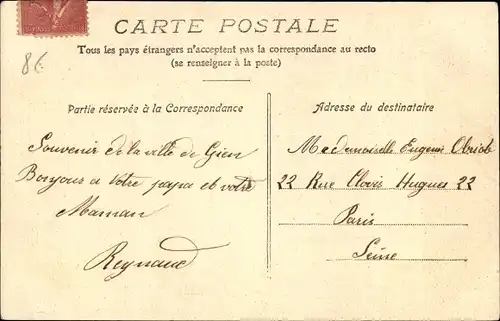 CARTE POSTALE
Tous les pays étrangers n'acceptent pas la correspondance au recto
(se renseigner à la poste)
86
Partie réservée à la Correspondance
Souvenir de la ville de Gien
Bonjour a votre papa et votre
Maman
Reynaud
Adresse du destinataire
Mademoiselle Eugenie
22 Rue Clovis Hugues 22
Paris
Seine